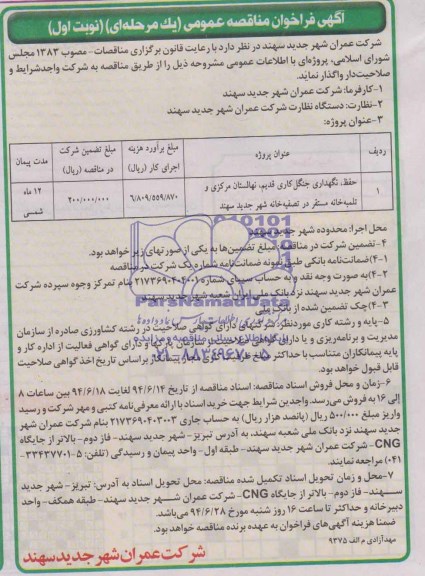 آگهی فراخوان مناقصه عمومی (یک مرحله‌ای) (نوبت اول)
شرکت عمران شهر جدید سهند در نظر دارد با رعایت قانون برگزاری مناقصات - مصوب ۱۳۸۳ مجلس
شورای اسلامی، پروژه‌ای با اطلاعات عمومی مشروحه ذیل را از طریق مناقصه به شرکت واجدشرایط و
صلاحیت‌دار واگذار نماید.
۱-کارفرما: شرکت عمران شهر جدید سهند
۲-نظارت: دستگاه نظارت شرکت عمران شهر جدید سهند
۳-عنوان پروژه:
ردیف عنوان پروژه مبلغ برآورد هزینه اجرای کار (ریال) مبلغ تضمین شرکت در مناقصه (ریال) مدت پیمان
۱ حفظ، نگهداری جنگل کاری قدیم، نهالستان مرکزی و تلمبه‌خانه مستقر در تصفیه‌خانه شهر جدید سهند ۶/۸۰۹/۵۵۹/۸۷۰ ۲۰۰/۰۰۰/۰۰۰ ۱۲ ماه شمسی
محل اجرا: محدوده شهر جدید سهند
۴-تضمین شرکت در مناقصه: مبلغ تضمین‌ها به یکی از صورتهای زیر خواهد بود.
۴-۱)ضمانت‌نامه بانکی طبق نمونه ضمانت‌نامه شماره یک شرکت در مناقصه
۴-۲)به صورت وجه نقد و به حساب سیبای شماره بنام تمرکز وجوه سپرده شرکت
عمران شهر جدید سهند نزد بانک ملی ایران شعبه شهر جدید سهند
۴-۳)چک تضمین شده از بانک ملی
۵-پایه و رشته کاری موردنظر: شرکتهای دارای گواهی صلاحیت در رشته کشاورزی صادره از سازمان
مدیریت و برنامه‌ریزی و یا دارای گواهی صلاحیت از سازمان پارکها و دارای گواهی فعالیت از اداره کار و
پایه پیمانکاران متناسب با حداکثر مبلغ ظرفیت کاری مجاز پیمانکار براساس تاریخ اخذ گواهی صلاحیت
قابل قبول خواهد بود.
۶-زمان و محل فروش اسناد مناقصه: اسناد مناقصه از تاریخ ۹۴/۶/۱۴ لغایت ۹۴/۶/۱۸ بین ساعات ۸
الی ۱۶ به فروش می‌رسد. واجدین شرایط جهت خرید اسناد با ارائه معرفی‌نامه کتبی و مهر شرکت و رسید
واریز مبلغ ۵۰۰/۰۰۰ ریال (پانصد هزار ریال) به حساب جاری ۲۱۷۳۶۹۰۴۰۳۰۰۳ بنام شرکت عمران شهر
جدید سهند نزد بانک ملی شعبه سهند، به آدرس تبریز - شهر جدید سهند - فاز دوم - بالاتر از جایگاه
CNG - شرکت عمران شهر جدید سهند - طبقه اول - واحد پیمان و رسیدگی (تلفن: ۵-۳۳۴۳۷۷۰۱
۰۴۱) مراجعه نمایند.
۷-محل و زمان تحویل اسناد تکمیل شده مناقصه: محل تحویل اسناد به آدرس: تبریز - شهر جدید
سهند - فاز دوم - بالاتر از جایگاه CNG - شرکت عمران شهر جدید سهند - طبقه همکف - واحد
دبیرخانه و حداکثر تا ساعت ۱۶ روز شنبه مورخ ۹۴/۶/۲۸ می‌باشد.
ضمنا هزینه آگهی‌های فراخوان به عهده برنده مناقصه خواهد بود.
مهدآزادی م الف ۹۳۷۵
شرکت عمران شهر جدید سهند
ParsNamadData
۰۲۱-۸۸۳۴۹۶۷۰-۵